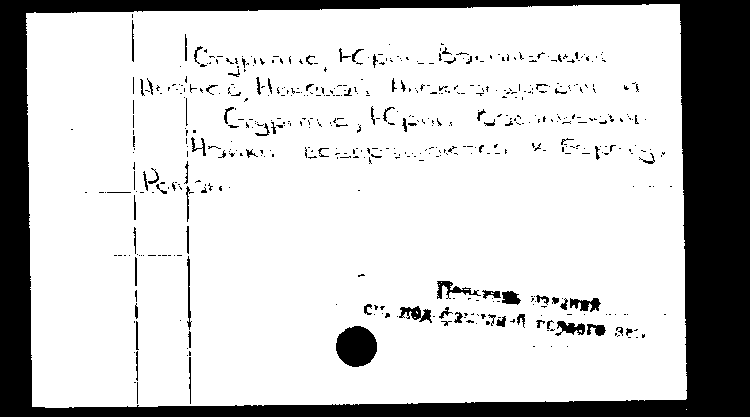 Стуритис, Юрий Васильевич
Иванов, Николай Александрович и
Стуритис, Юрий Васильевич
Чайки возвращаются к берегу.
Роман.
Перечень изданий
см. под фамилией первого авт.